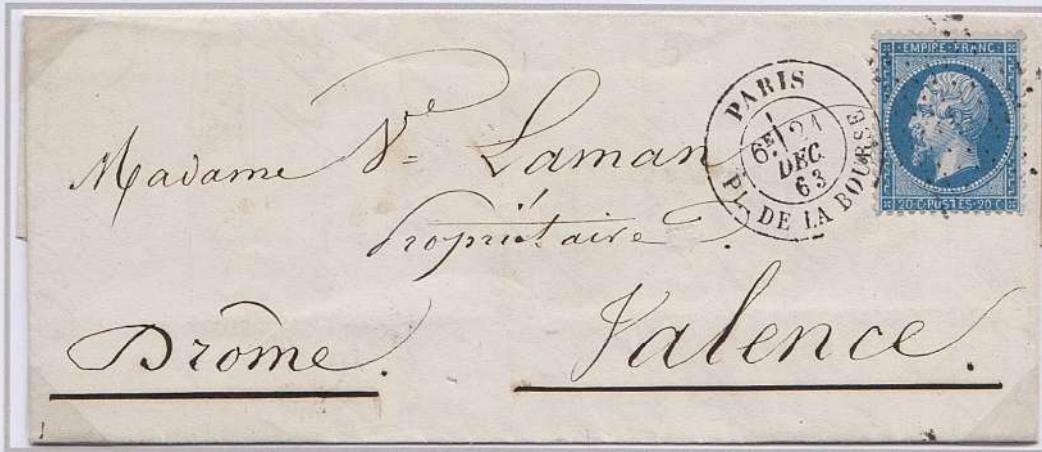 EMPIRE · FRANC
20·C·POSTES·20 C
PARIS
6E
21
DEC.
63
PL. DE LA BOURSE
Madame Ve Laman
Propriétaire.
Drôme. Valence.